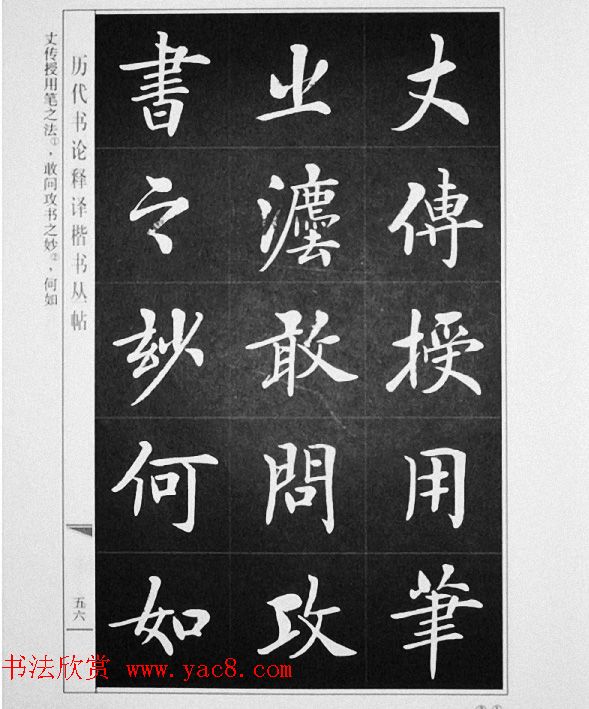 丈傳授用筆
之灋敢問攻
書之玅何如
历代书论释译楷书丛帖
丈传授用笔之法①，敢问攻书之妙②，何如
五六
书法欣赏 www.yac8.com